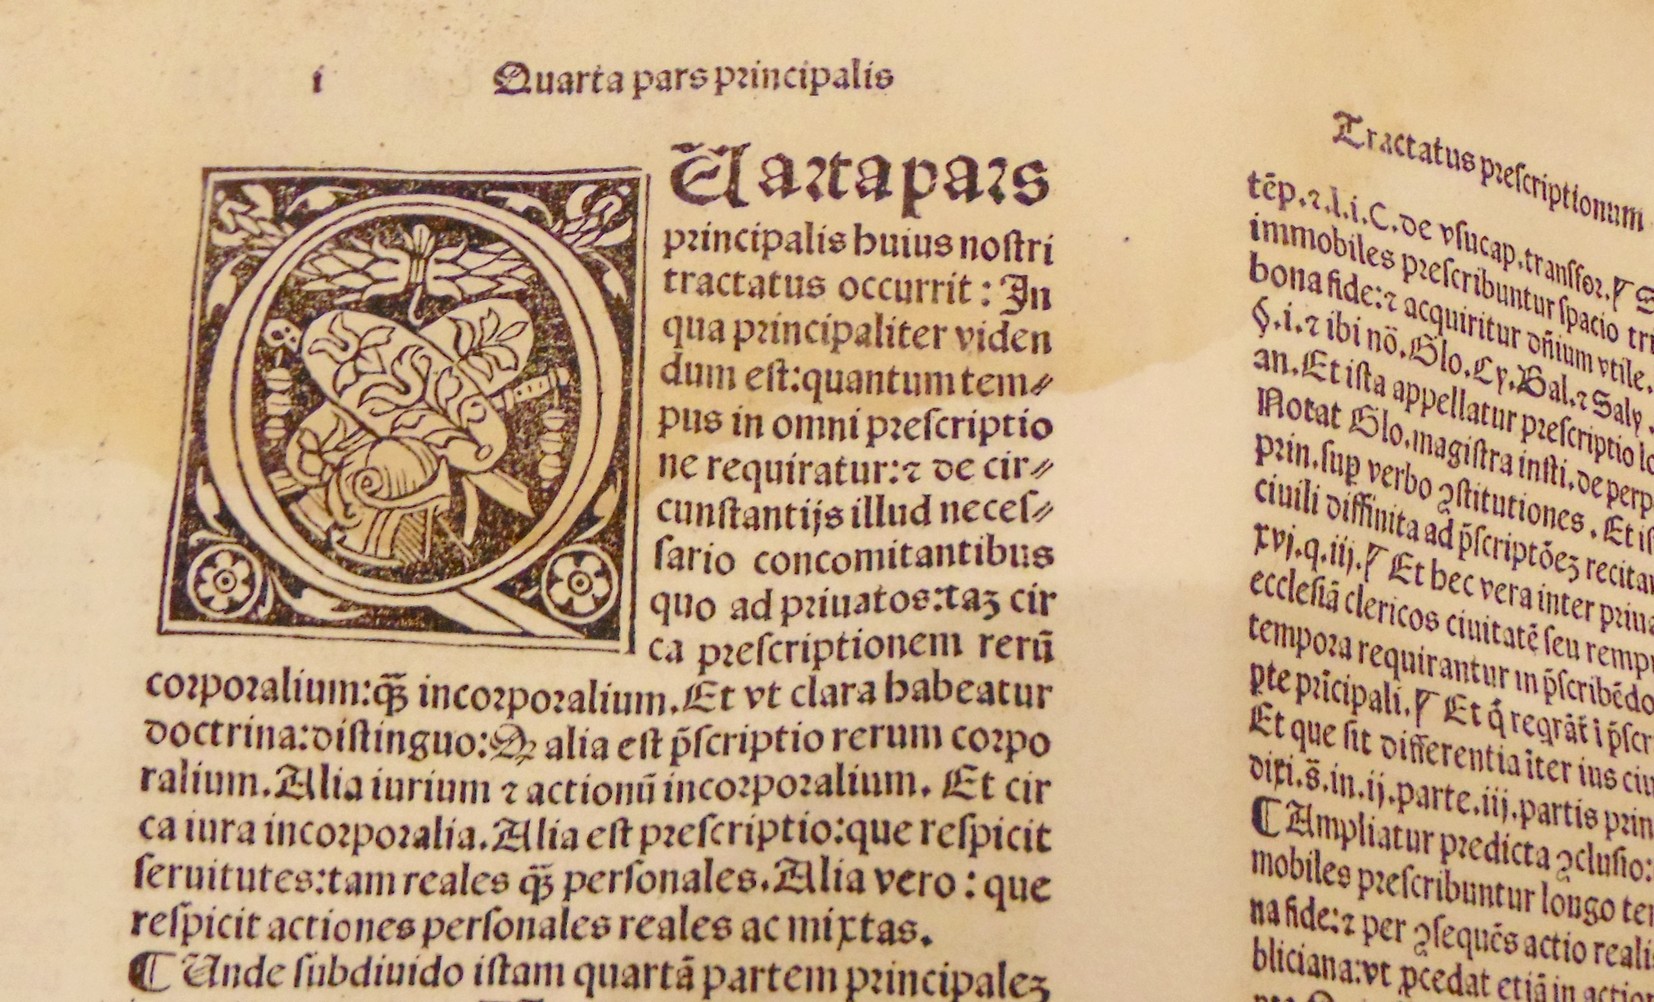 i Quarta pars principalis
Uarta pars
principalis huius nostri
tractatus occurrit : In
qua principaliter viden
dum est:quantum tem⸗
pus in omni prescriptio
ne requiratur:⁊ de cir⸗
cunstantijs illud neces⸗
sario concomitantibus
quo ad priuatos:taꝫ cir
ca prescriptionem rerū
corporalium:q̄ꝫ incorporalium.Et vt clara habeatur
doctrina:distinguo:Qꝛ alia est p̄scriptio rerum corpo
ralium.Alia iurium ⁊ actionū incorporalium. Et cir
ca iura incorporalia.Alia est prescriptio:que respicit
seruitutes:tam reales q̄ꝫ personales.Alia vero : que
respicit actiones personales reales ac mixtas.
¶ Unde subdiuido istam quartā partem principaleꝫ
Tractatus prescriptionum
tēp.⁊.l.i.C.de vsucap.transfor.¶ S
immobiles prescribuntur spacio tri
bona fide:⁊ acquiritur dn̄ium vtile.
§.i.⁊ ibi nō.Glo.Cy.Bal.⁊ Saly.
an.Et ista appellatur prescriptio lo
Notat Glo.magistra insti.de perp
prin.sup verbo ꝯstitutiones. Et is
ciuili diffinita ad p̄scriptōeꝫ recita
xvj.q.iij.¶ Et hec vera inter priua
ecclesiā clericos ciuitatē seu remp
tempora requirantur in p̄scribēdo
pte prīcipali.¶ Et q̄ regrāt̄ ī p̄scr
Et que sit differentia īter ius ciu
dixi.s̄.in.ij.parte.iij.partis prin
¶ Ampliatur predicta ꝯclusio:
mobiles prescribuntur longo te
na fide:⁊ per ꝯsequēs actio reali
bliciana:vt ꝓcedat etiā in action